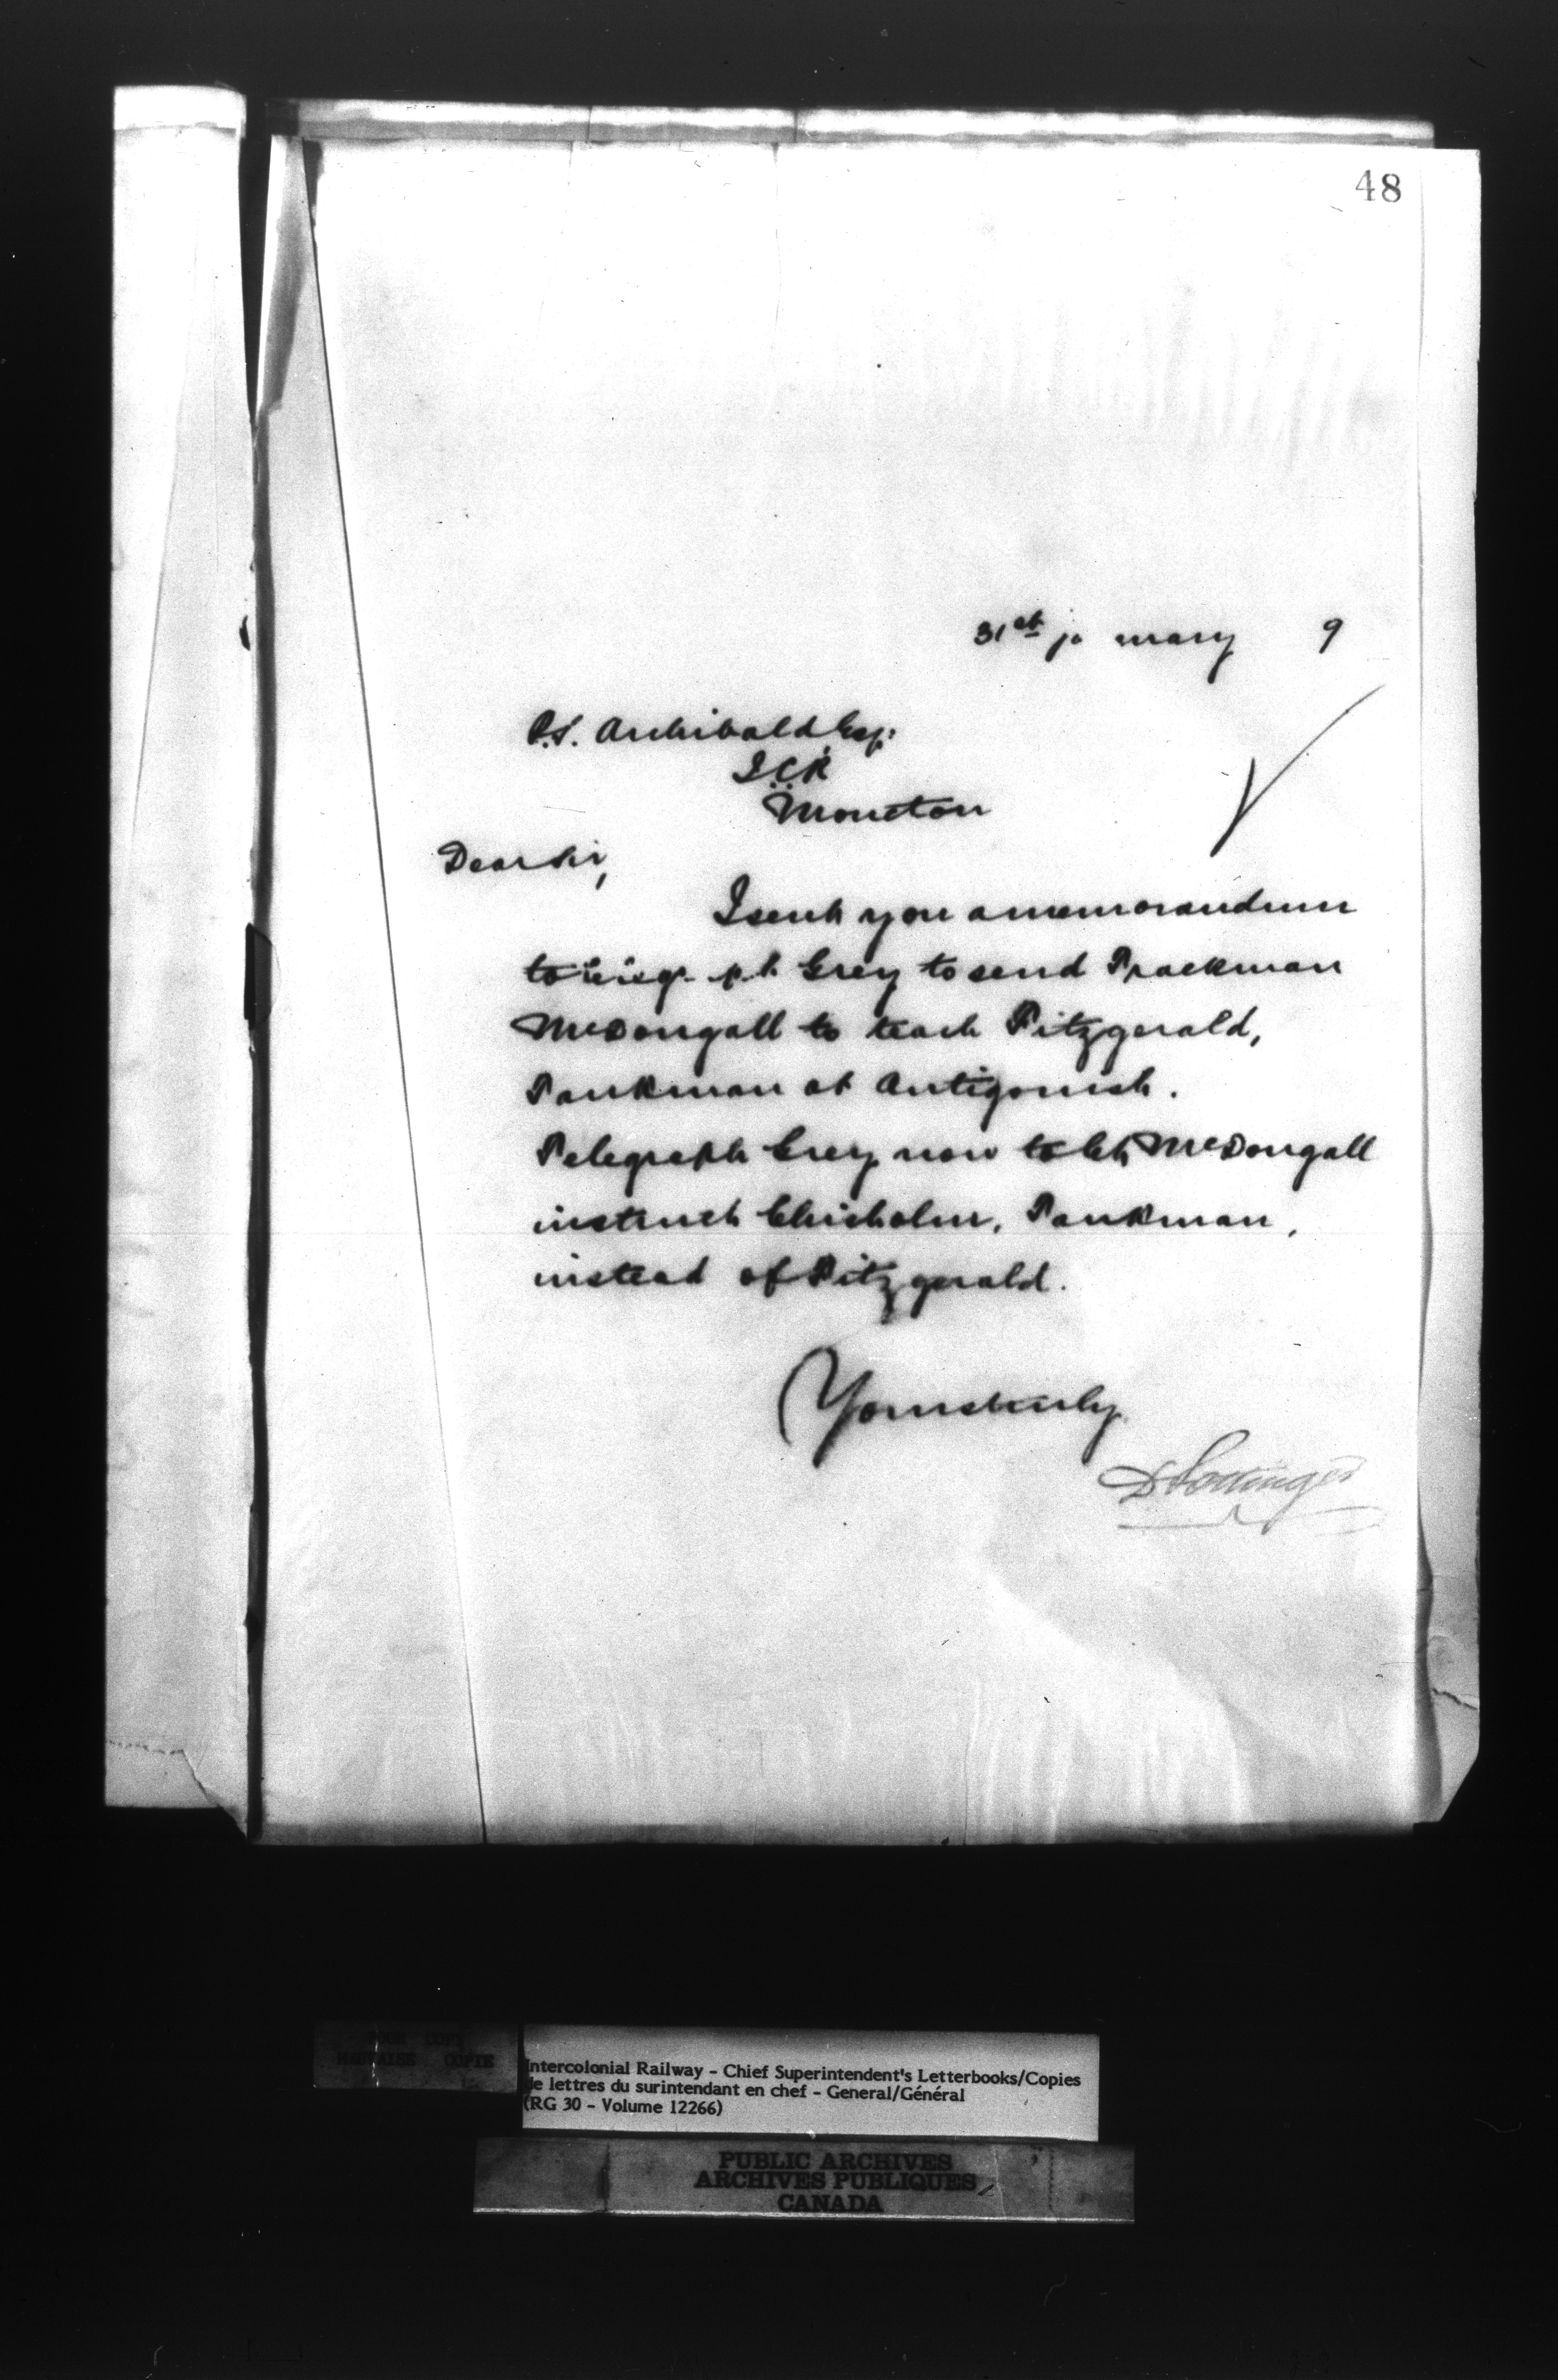 48
31st January 9
P.S. Archibald Esq:
I.C.R
Moncton
Dear Sir,
I sent you a memorandum
to Grey to send Trackman
McDougall to teach Fitzgerald,
Tankman at Antigonish.
Telegraph Grey now to let McDougall
instruct Chisholm, Tankman,
instead of Fitzgerald.
Yours truly
D Pottinger
MAUVAISE COPIE
Intercolonial Railway - Chief Superintendent's Letterbooks/Copies
de lettres du surintendant en chef - General/Général
(RG 30 - Volume 12266)
PUBLIC ARCHIVES
ARCHIVES PUBLIQUES
CANADA